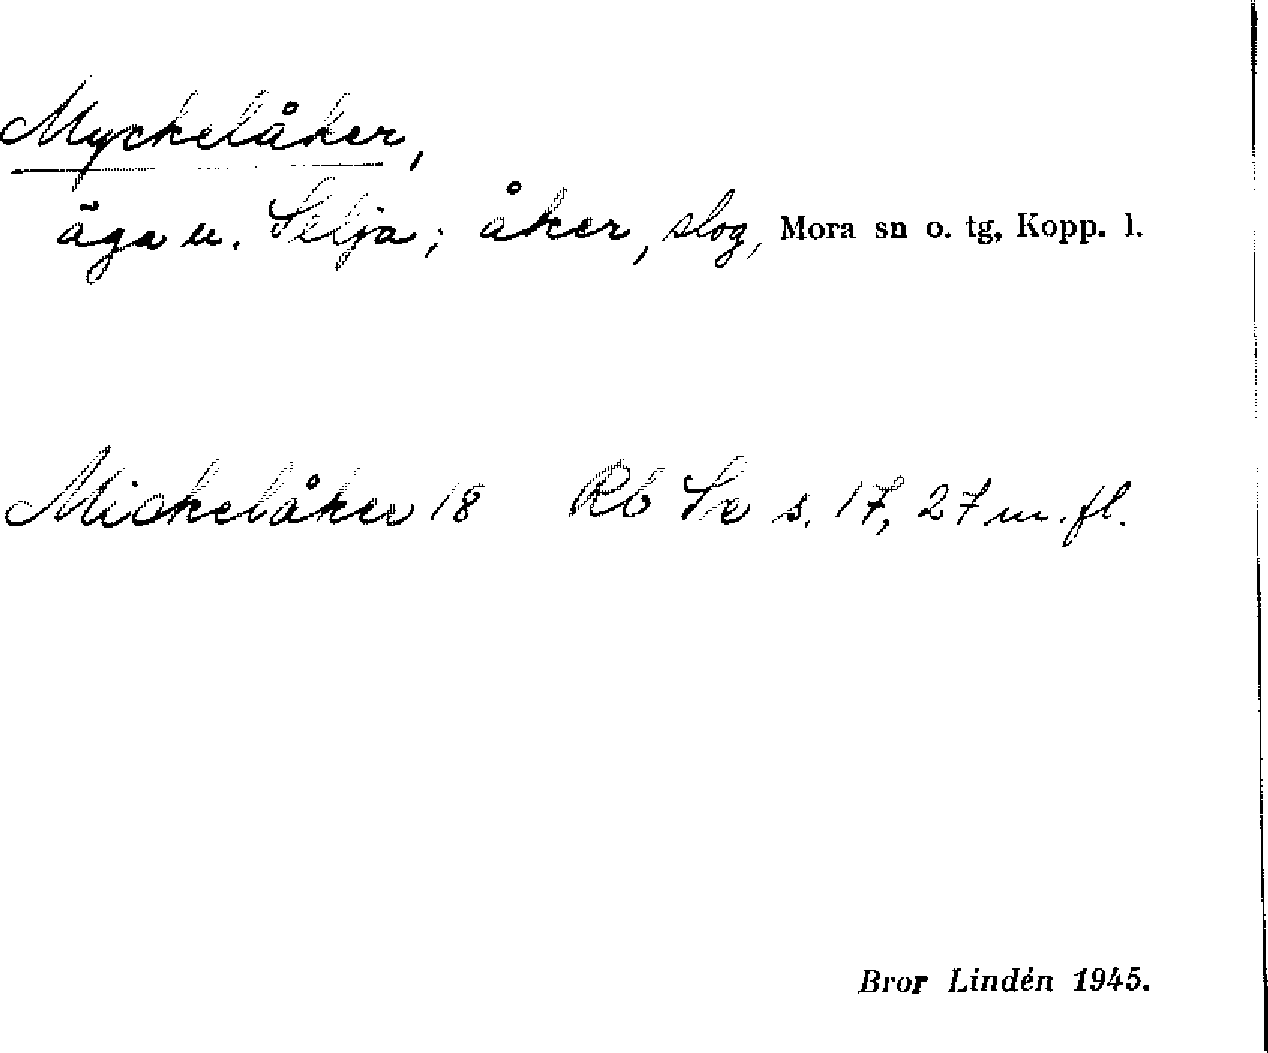 Myckelåker,
äga u. Selja; åker, slog, Mora sn o. tg, Kopp. l.
Mickelåker 18 Rb Se s. 17, 27 m. fl.
Bror Lindén 1945.